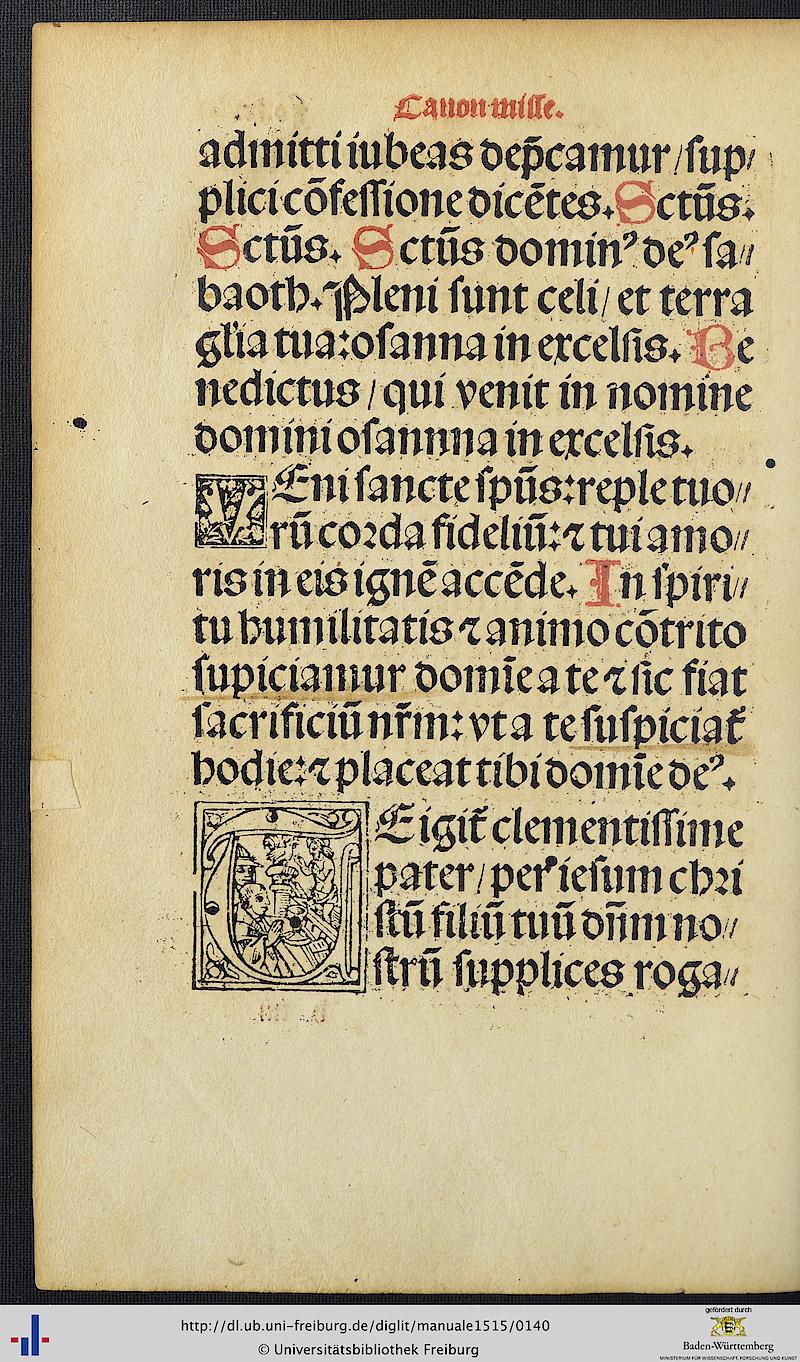 Canon misse.
admitti iubeas dep̄camur / sup//
plici cōfessione dicētes. Sctūs.
Sctūs. Sctūs dominꝰ deꝰ sa//
baoth. Pleni sunt celi / et terra
gl'ia tua: osanna in excelsis. Be
nedictus / qui venit in nomine
domini osannna in excelsis.
VEni sancte spūs: reple tuo//
rū corda fideliū: ⁊ tui amo//
ris in eis ignē accēde. In spiri//
tu humilitatis ⁊ animo cōtrito
supiciamur domīe a te ⁊ sic fiat
sacrificiū nr̄m: vt a te suspiciat᷑
hodie: ⁊ placeat tibi domīe deꝰ.
TE igit᷑ clementissime
pater / per iesum chꝛi
stū filiū tuū dn̄m no//
strū supplices roga//
http://dl.ub.uni-freiburg.de/diglit/manuale1515/0140
© Universitätsbibliothek Freiburg
gefördert durch
Baden-Württemberg
MINISTERIUM FÜR WISSENSCHAFT, FORSCHUNG UND KUNST